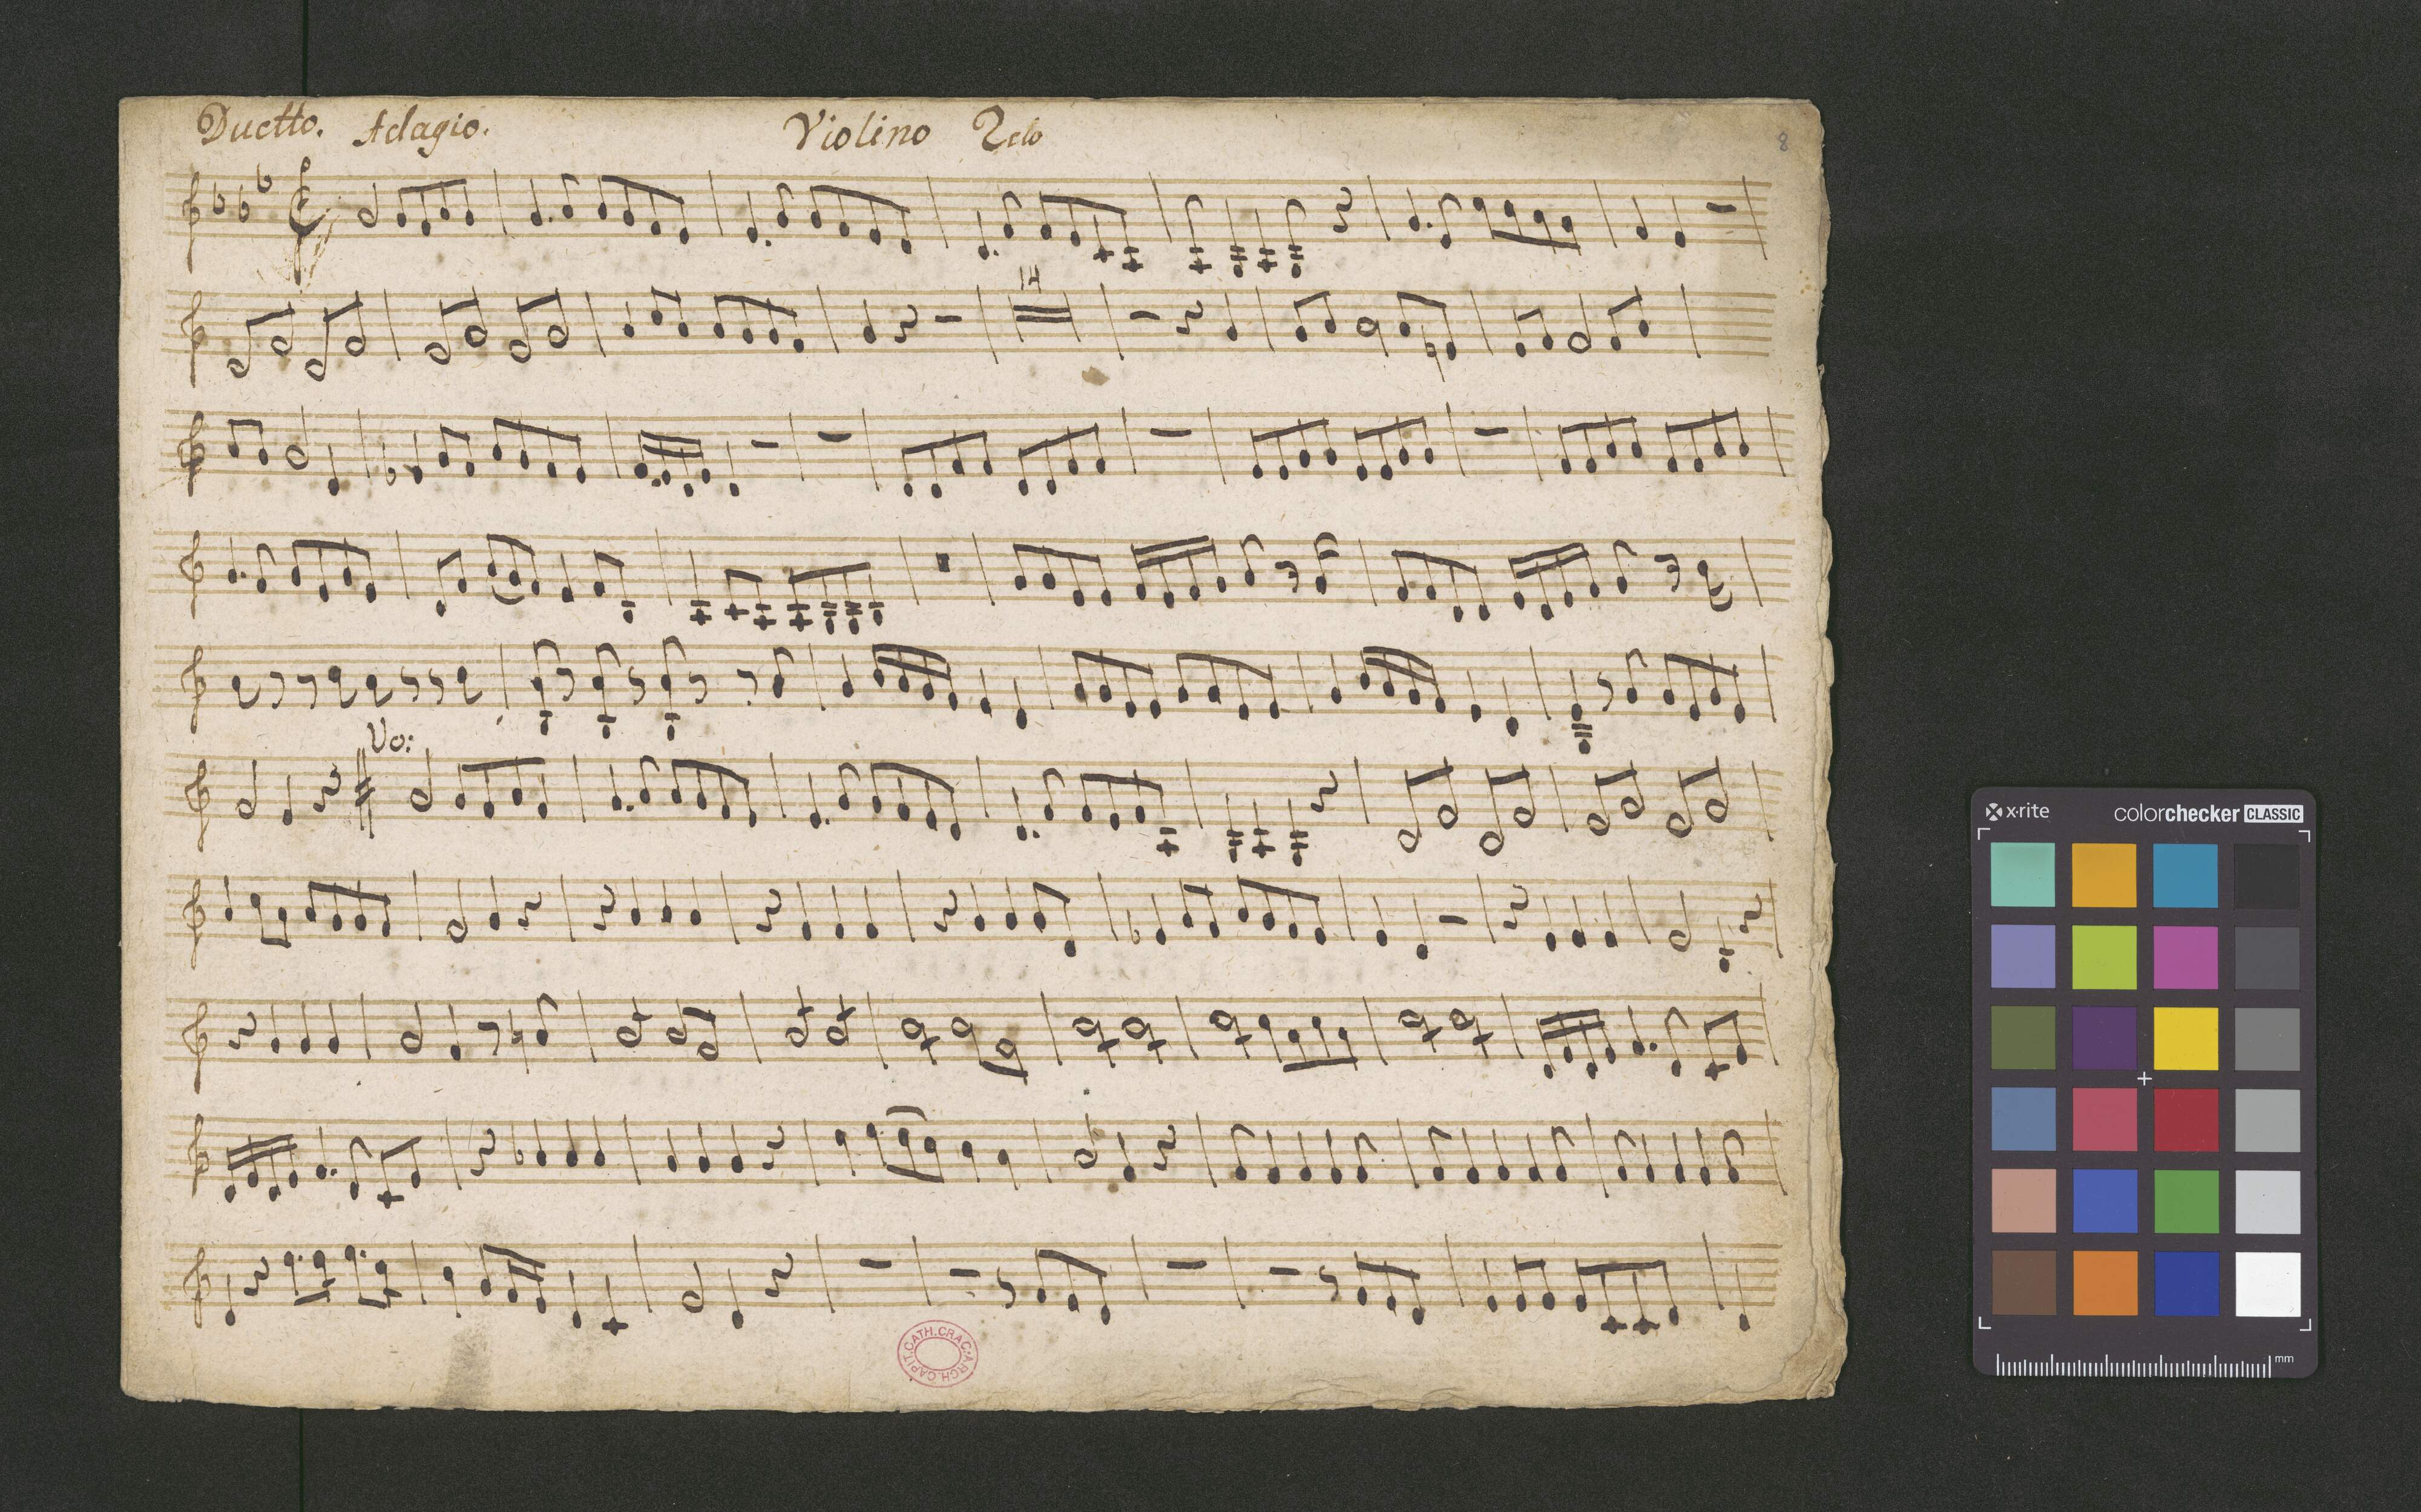 Duetto. Adagio. Violino 2do
8
14
Vo:
ARCH.CAPIT.CATH.CRAC.
x·rite colorchecker CLASSIC
mm